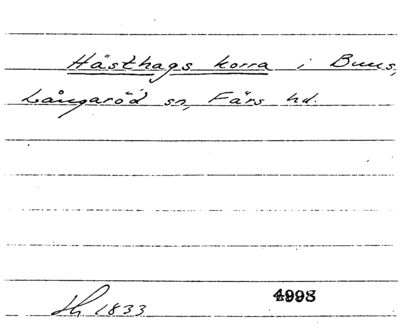 Hästhags korra i Buus,
Långaröd sn, Färs hd.
Lh 1833 4998